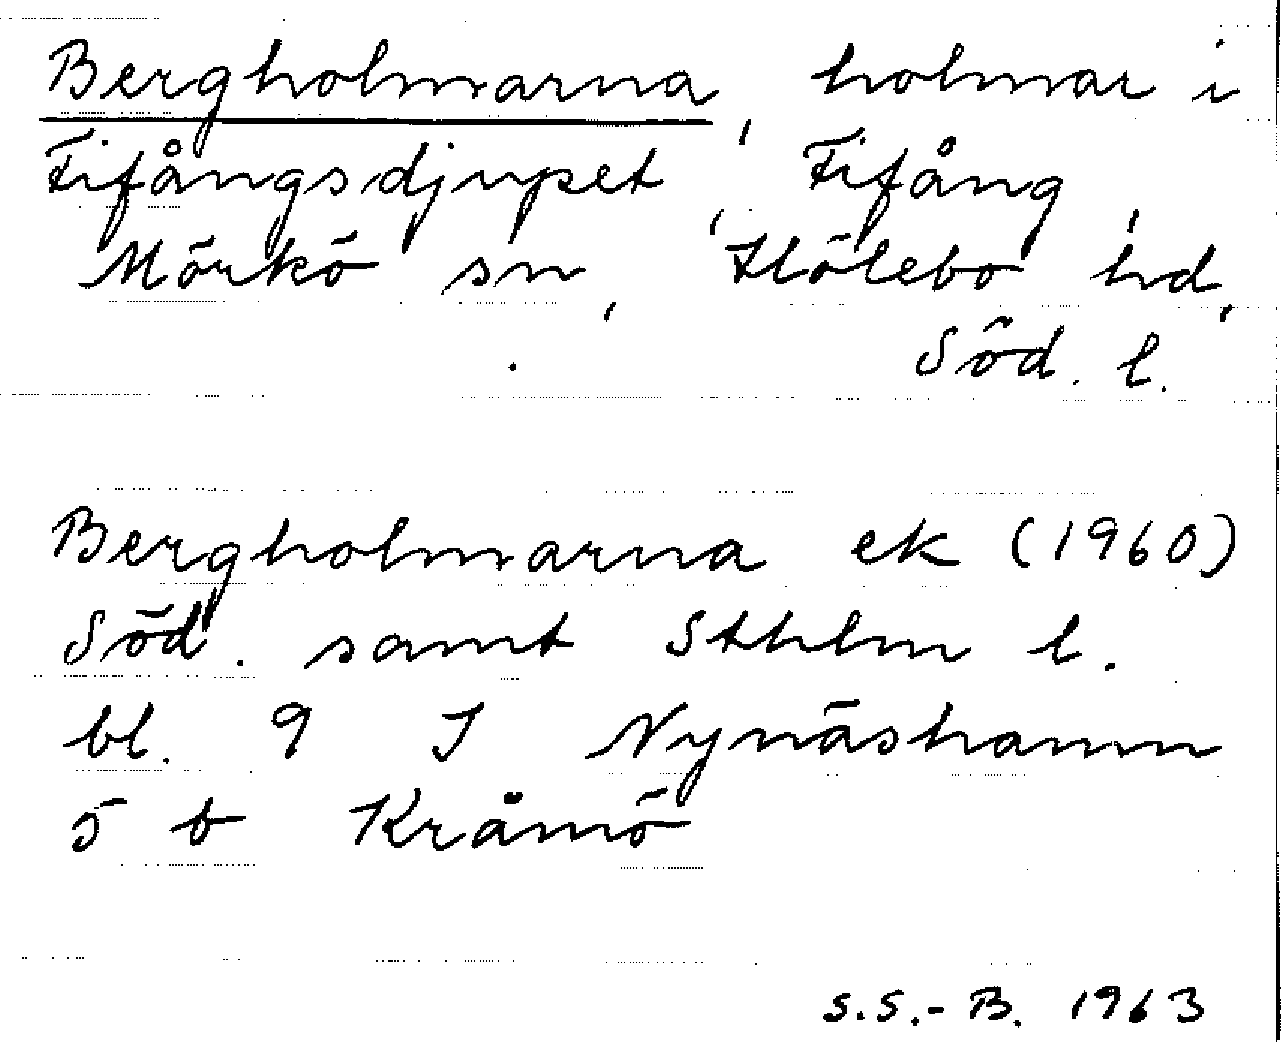 Bergholmarna, holmar i
Fifångsdjupet, Fifång,
Mörkö sn, Hölebo hd,
Söd. l.
Bergholmarna ek (1960)
Söd. samt Sthlm l.
bl. 9 I Nynäshamn
5 b Kråmö
S.S.-B. 1963